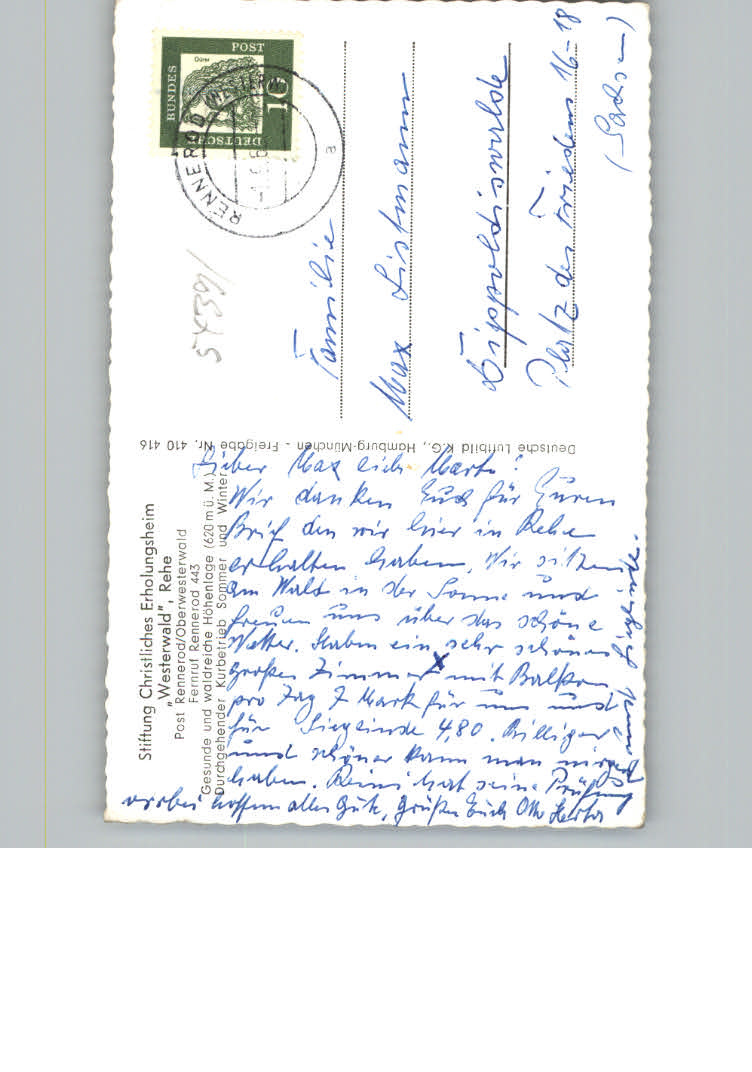 Stiftung Christliches Erholungsheim
„Westerwald", Rehe
Post Rennerod/Oberwesterwald
Fernruf Rennerod 443
Gesunde und waldreiche Höhenlage (620 m ü. M.)
Durchgehender Kurbetrieb Sommer und Winter
Lieber Max und Marta!
Wir danken Euch für Euren
Brief den wir hier in Rehe
erhalten haben. Wir sitzen
am Wald in der Sonne und
freuen uns über das schöne
Wetter. Haben ein sehr schönes
großes Zimmer mit Balkon
pro Tag 7 Mark für uns und
für Sieglinde 4,80. Billiger
und schöner kann man nirgends
haben. Reini hat seine Prüfung
vorbei hoffen alles Gute, Grüßen Euch Otto Herta
und Sieglinde.
Deutsche Luftbild K.G., Hamburg-München - Freigabe Nr. 410 416
DEUTSCHE
BUNDES
POST
10
Dürer
RENNEROD (WESTERW)
a
5X391
Familie
Max Listmann
Dippoldiswalde
Platz des Friedens 16-18
(Sachsen)